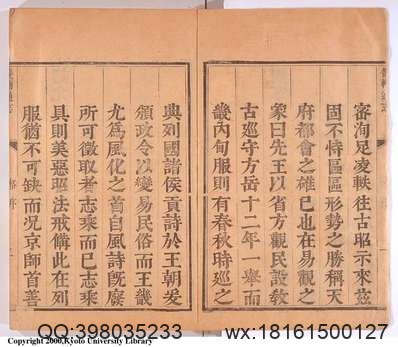 審洵足凌軼往古昭示來茲
固不恃區區形勢之勝稱天
府都會之雄已也在易觀之
象曰先王以省方觀民設教
古巡守方岳十二年一舉而
畿内甸服則有春秋時巡之
典列國諸侯貢詩於王朝爰
頒政令以變易民俗而王畿
尤爲風化之首自風詩旣廢
所可徵取者志乘而已志乘
具則美惡臧法戒備此在列
服猶不可缺而況京師首善
QQ:398035233 wx:18161500127
Copyright 2000,Kyoto University Library